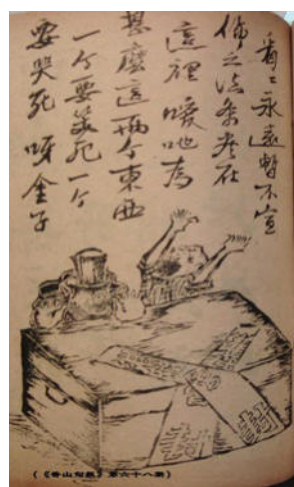 看々永遠暫不宣
佈之法案在
這裡 噯吔為
甚麼這兩个東西
一个要笑死一个
要哭死 呀金子
(《香山旬報》第六十八期)